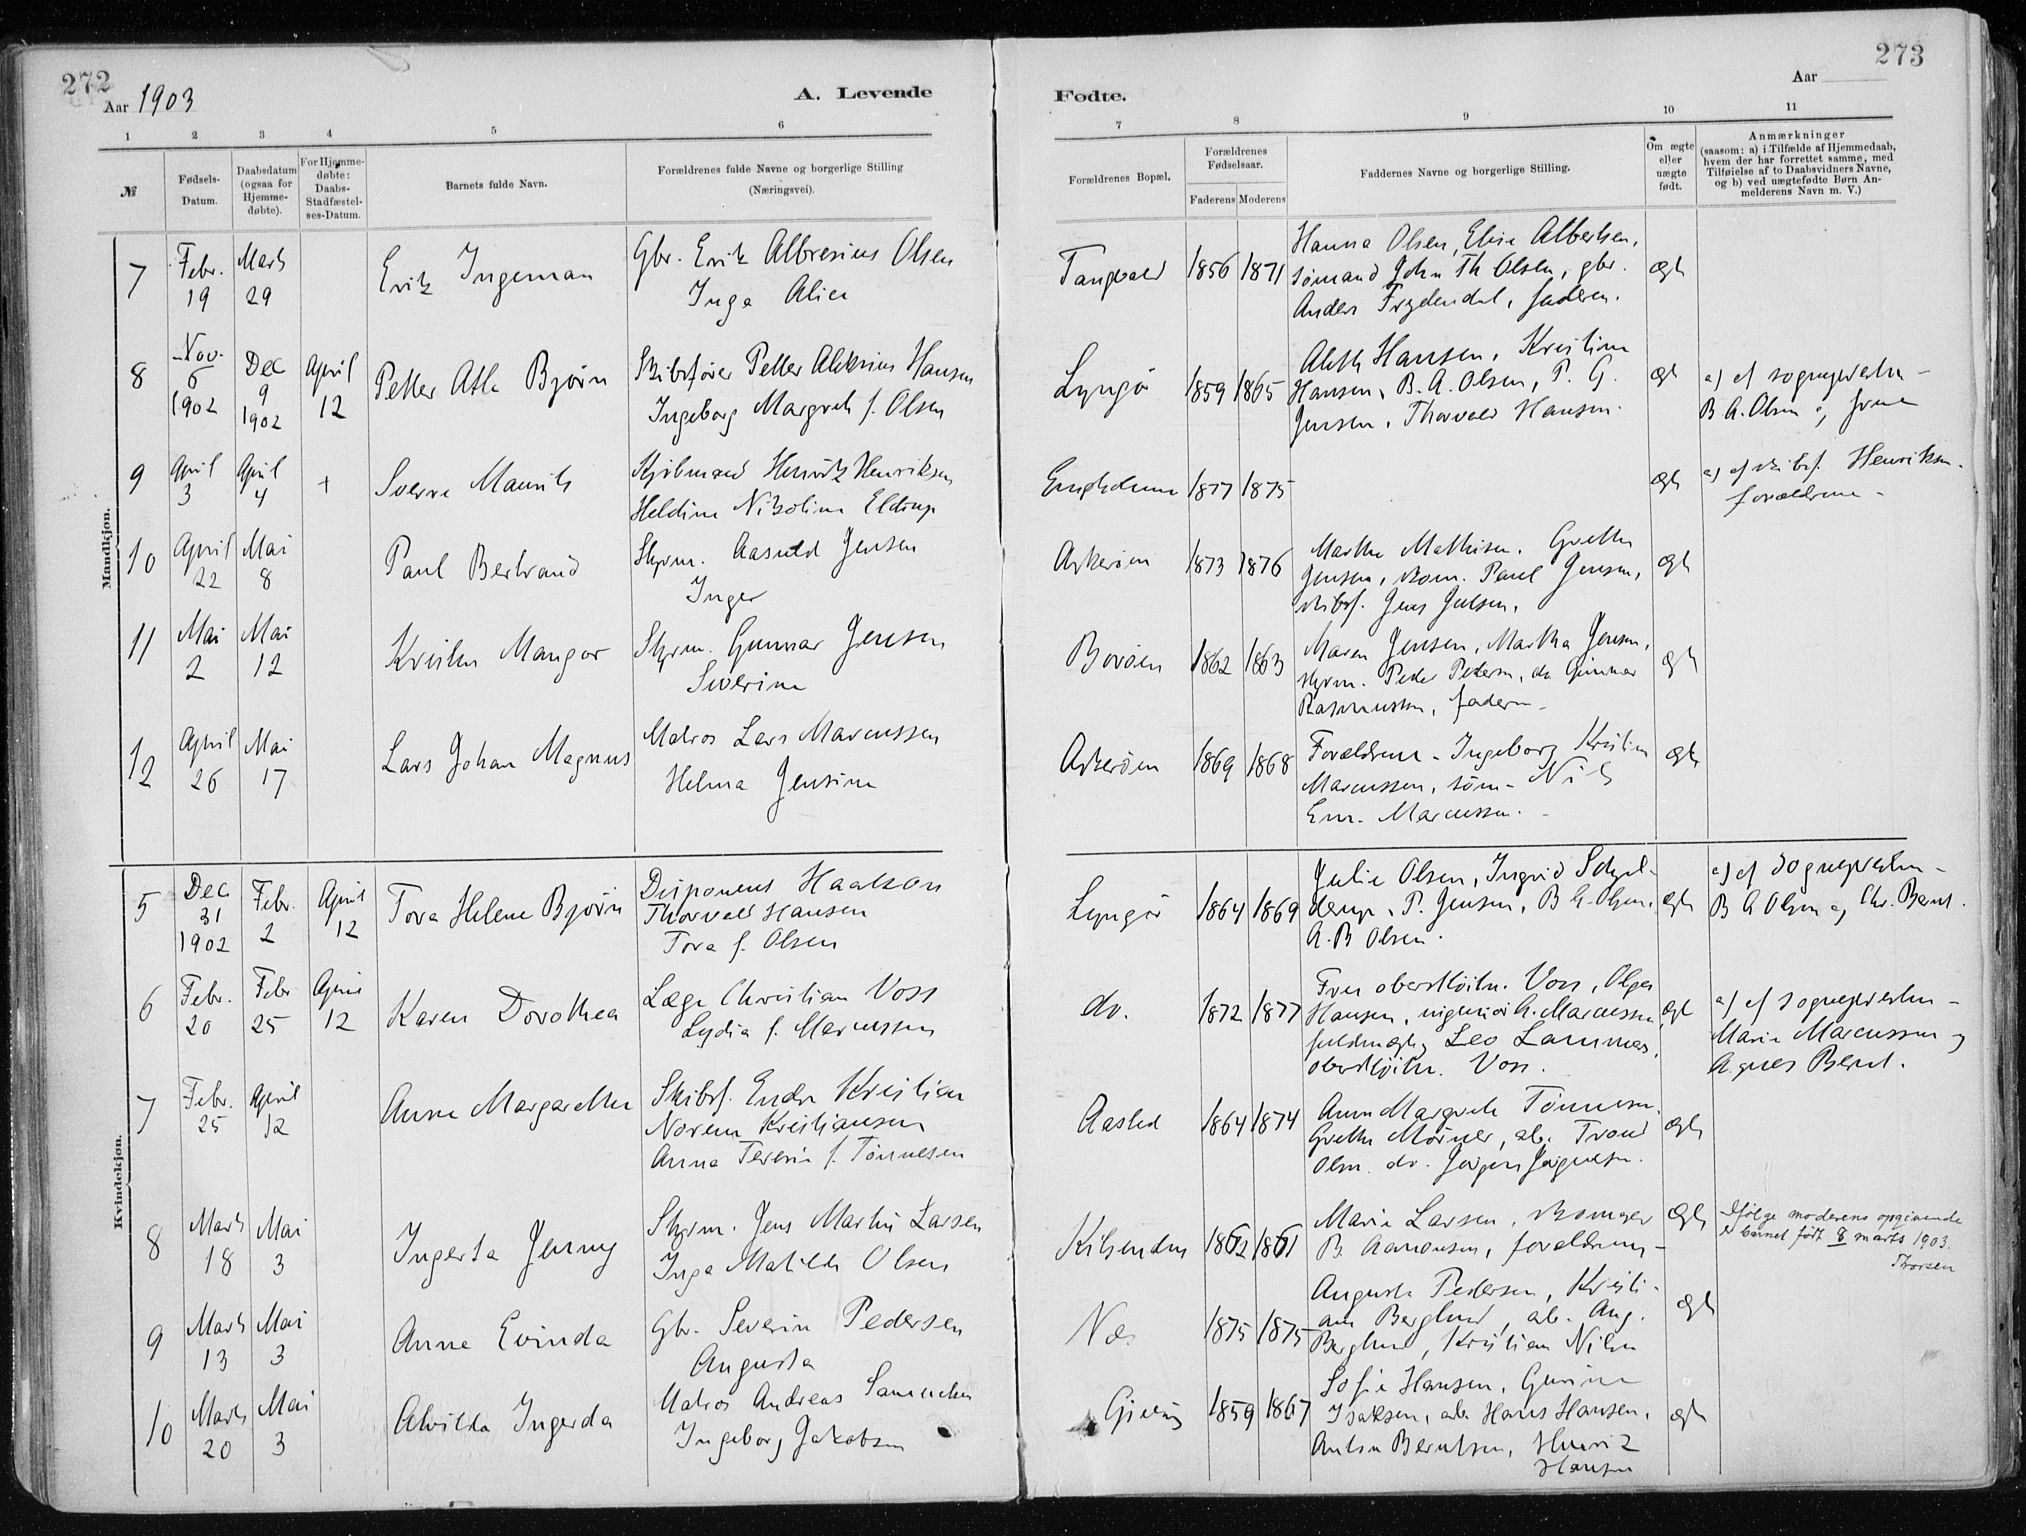 272
Aar 1903
A. Levende
1 2 3 4 5 6
№
Fødsels-
Datum.
Daabsdatum
(ogsaa for
Hjemme-
døbte).
For Hjemme-
døbte:
Daabs-
Stadfæstel-
ses-Datum.
Barnets fulde Navn.
Forældrenes fulde Navne og borgerlige Stilling
(Næringsvei).
Mandkjøn.
7 Febr. 19 Marts 29 Erik Ingeman
Gbr. Erik Albresius Olsen
Inga Alice
8 Nov. 6 1902 Dec 9 1902 April 12 Petter Atle Bjørn
Skibsfører Petter Aleksius Hansen
Ingeborg Margrethe f. Olsen
9 April 3 April 4 + Sverre Maurits
Kjøbmand Henrik Henriksen
Heldine Nikoline Eldrup
10 April 22 Mai 8 Paul Bertrand
Styrm. Aasuld Jensen
Inger
11 Mai 2 Mai 12 Kristen Mangor
Styrm. Gunnar Jensen
Severine
12 April 26 Mai 17 Lars Johan Magnus
Matros Lars Marcussen
Helma Jensine
Kvindekjøn.
5 Dec 31 1902 Febr. 2 April 12 Tora Helene Bjørn
Disponent Haakon
Thorvald Hansen
Tora f. Olsen
6 Febr. 20 Febr 25 April 12 Karen Dorothea
Læge Christian Voss
Lydia f. Marcussen
7 Febr. 25 April 12 Anne Margarethe
Skibsf. Endre Kristian
Norem Kristiansen
Anna Teresie f. Tönnesen
8 Marts 18 Mai 3 Ingerta Jenny
Styrm. Jens Martin Larsen
Inga Matilde Olsen
9 Marts 13 Mai 3 Anne Evinda
Gbr. Severin Pedersen
Augusta
10 Marts 20 Mai 3 Alvilda Ingerda
Matros Andreas Samuelsen
Ingeborg Jakobsen
273
Aar
Fødte.
7 8 9 10 11
Forældrenes Bopæl.
Forældrenes
Fødselsaar.
Faderens Moderens
Faddernes Navne og borgerlige Stilling
Om ægte
eller
uægte
født.
Anmærkninger
(saasom: a) i Tilfælde af Hjemmedaab,
hvem der har forrettet samme, med
Tilføielse af to Daabsvidners Navne,
og b) ved uægtefødte Børn An-
melderens Navn m. V.)
Tangvald 1856 1871
Hanna Olsen, Elise Albertsen,
sømand John Th Olsen, gbr.
Anders Frydendal, faderen.
ægte
Lyngør 1859 1865
Aleth Hansen, Kristine
Hansen, B. A. Olsen, P. G.
Jensen, Thorvald Hansen.
ægte
a) af sognepresten -
B A. Olsen og frue
1877 1875
ægte
a) af skibsf. Henriksen.
forældrene -
Askerøen 1873 1876
Marthe Mathisen. Grethe
Jensen, skom. Paul Jensen,
skibsf. Jens Julsen.
ægte
Borøen 1862 1863
Maren Jensen, Martha Jensen,
styrm. Peder Pedersen, do Gunnar
Rasmussen, faderen -
ægte
Askerøen 1869 1868
Forældrene - Ingeborg Kristine
Marcussen, søm- Nils
Marcussen. -
ægte
Lyngør 1864 1869
Julie Olsen, Ingrid Schyl-
derup, P. Jensen, B A. Olsen,
A. B Olsen.
ægte
a) af sognepresten -
B A Olsen og Chr. Bernt.
do. 1872 1877
Frue oberstløitn. Voss, Olga
Hansen, ingeniør A. Marcussen,
fuldmægtig Leo Lammers,
oberstløitn. Voss.
ægte
a) af sognepresten -
Marie Marcussen og
Agnes Bernt.
Aasted 1864 1874
Anne Margrethe Tönnesen.
Grethe Mörner, arb. Trond
Olsen. do. Jørgen Jørgensen.
ægte
1862 1861
Marie Larsen,
B. Aanonsen, forældrene -
ægte
Ifølge moderens opgivende
er barnet født 8 marts 1903.
Thorsen
Næs 1875 1875
Augusta Pedersen, Kristi-
ane Berglund, arb. Aug.
Berglund, Kristian Nilsen
ægte
Gjeving 1859 1867
Sofie Hansen, Gurine
Isaksen, arb. Hans Hansen,
Anton Berntsen, Henrik
Hansen
ægte